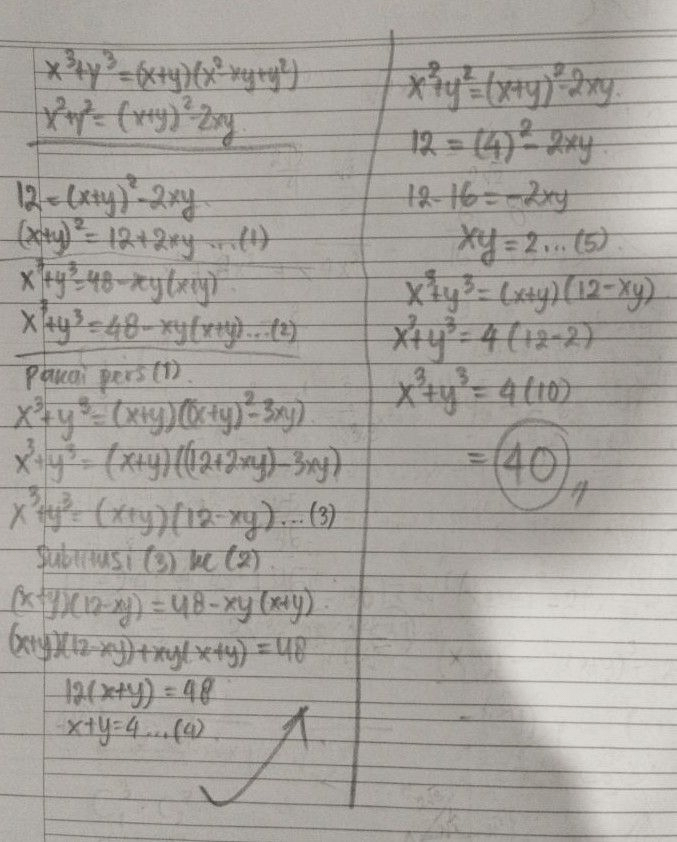 x³+y³=(x+y)(x²-xy+y²)
x²+y²= (x+y)²-2xy
12=(x+y)²-2xy
(x+y)²= 12+2xy ...(1)
x³+y³=48-xy(x+y)
x³+y³=48-xy(x+y)...(2)
pakai pers (1)
x³+y³=(x+y)((x+y)²-3xy)
x³+y³= (x+y)((12+2xy)-3xy)
x³+y³= (x+y)(12-xy)...(3)
Subtitusi (3) ke (2)
(x+y)(12-xy) = 48-xy(x+y)
(x+y)(12-xy)+xy(x+y) =48
12(x+y) = 48
x+y=4...(4)
x²+y²=(x+y)²-2xy
12 = (4)²- 2xy
12-16=-2xy
xy=2...(5)
x³+y³=(x+y)(12-xy)
x³+y³= 4(12-2)
x³+y³= 4(10)
= 40 //